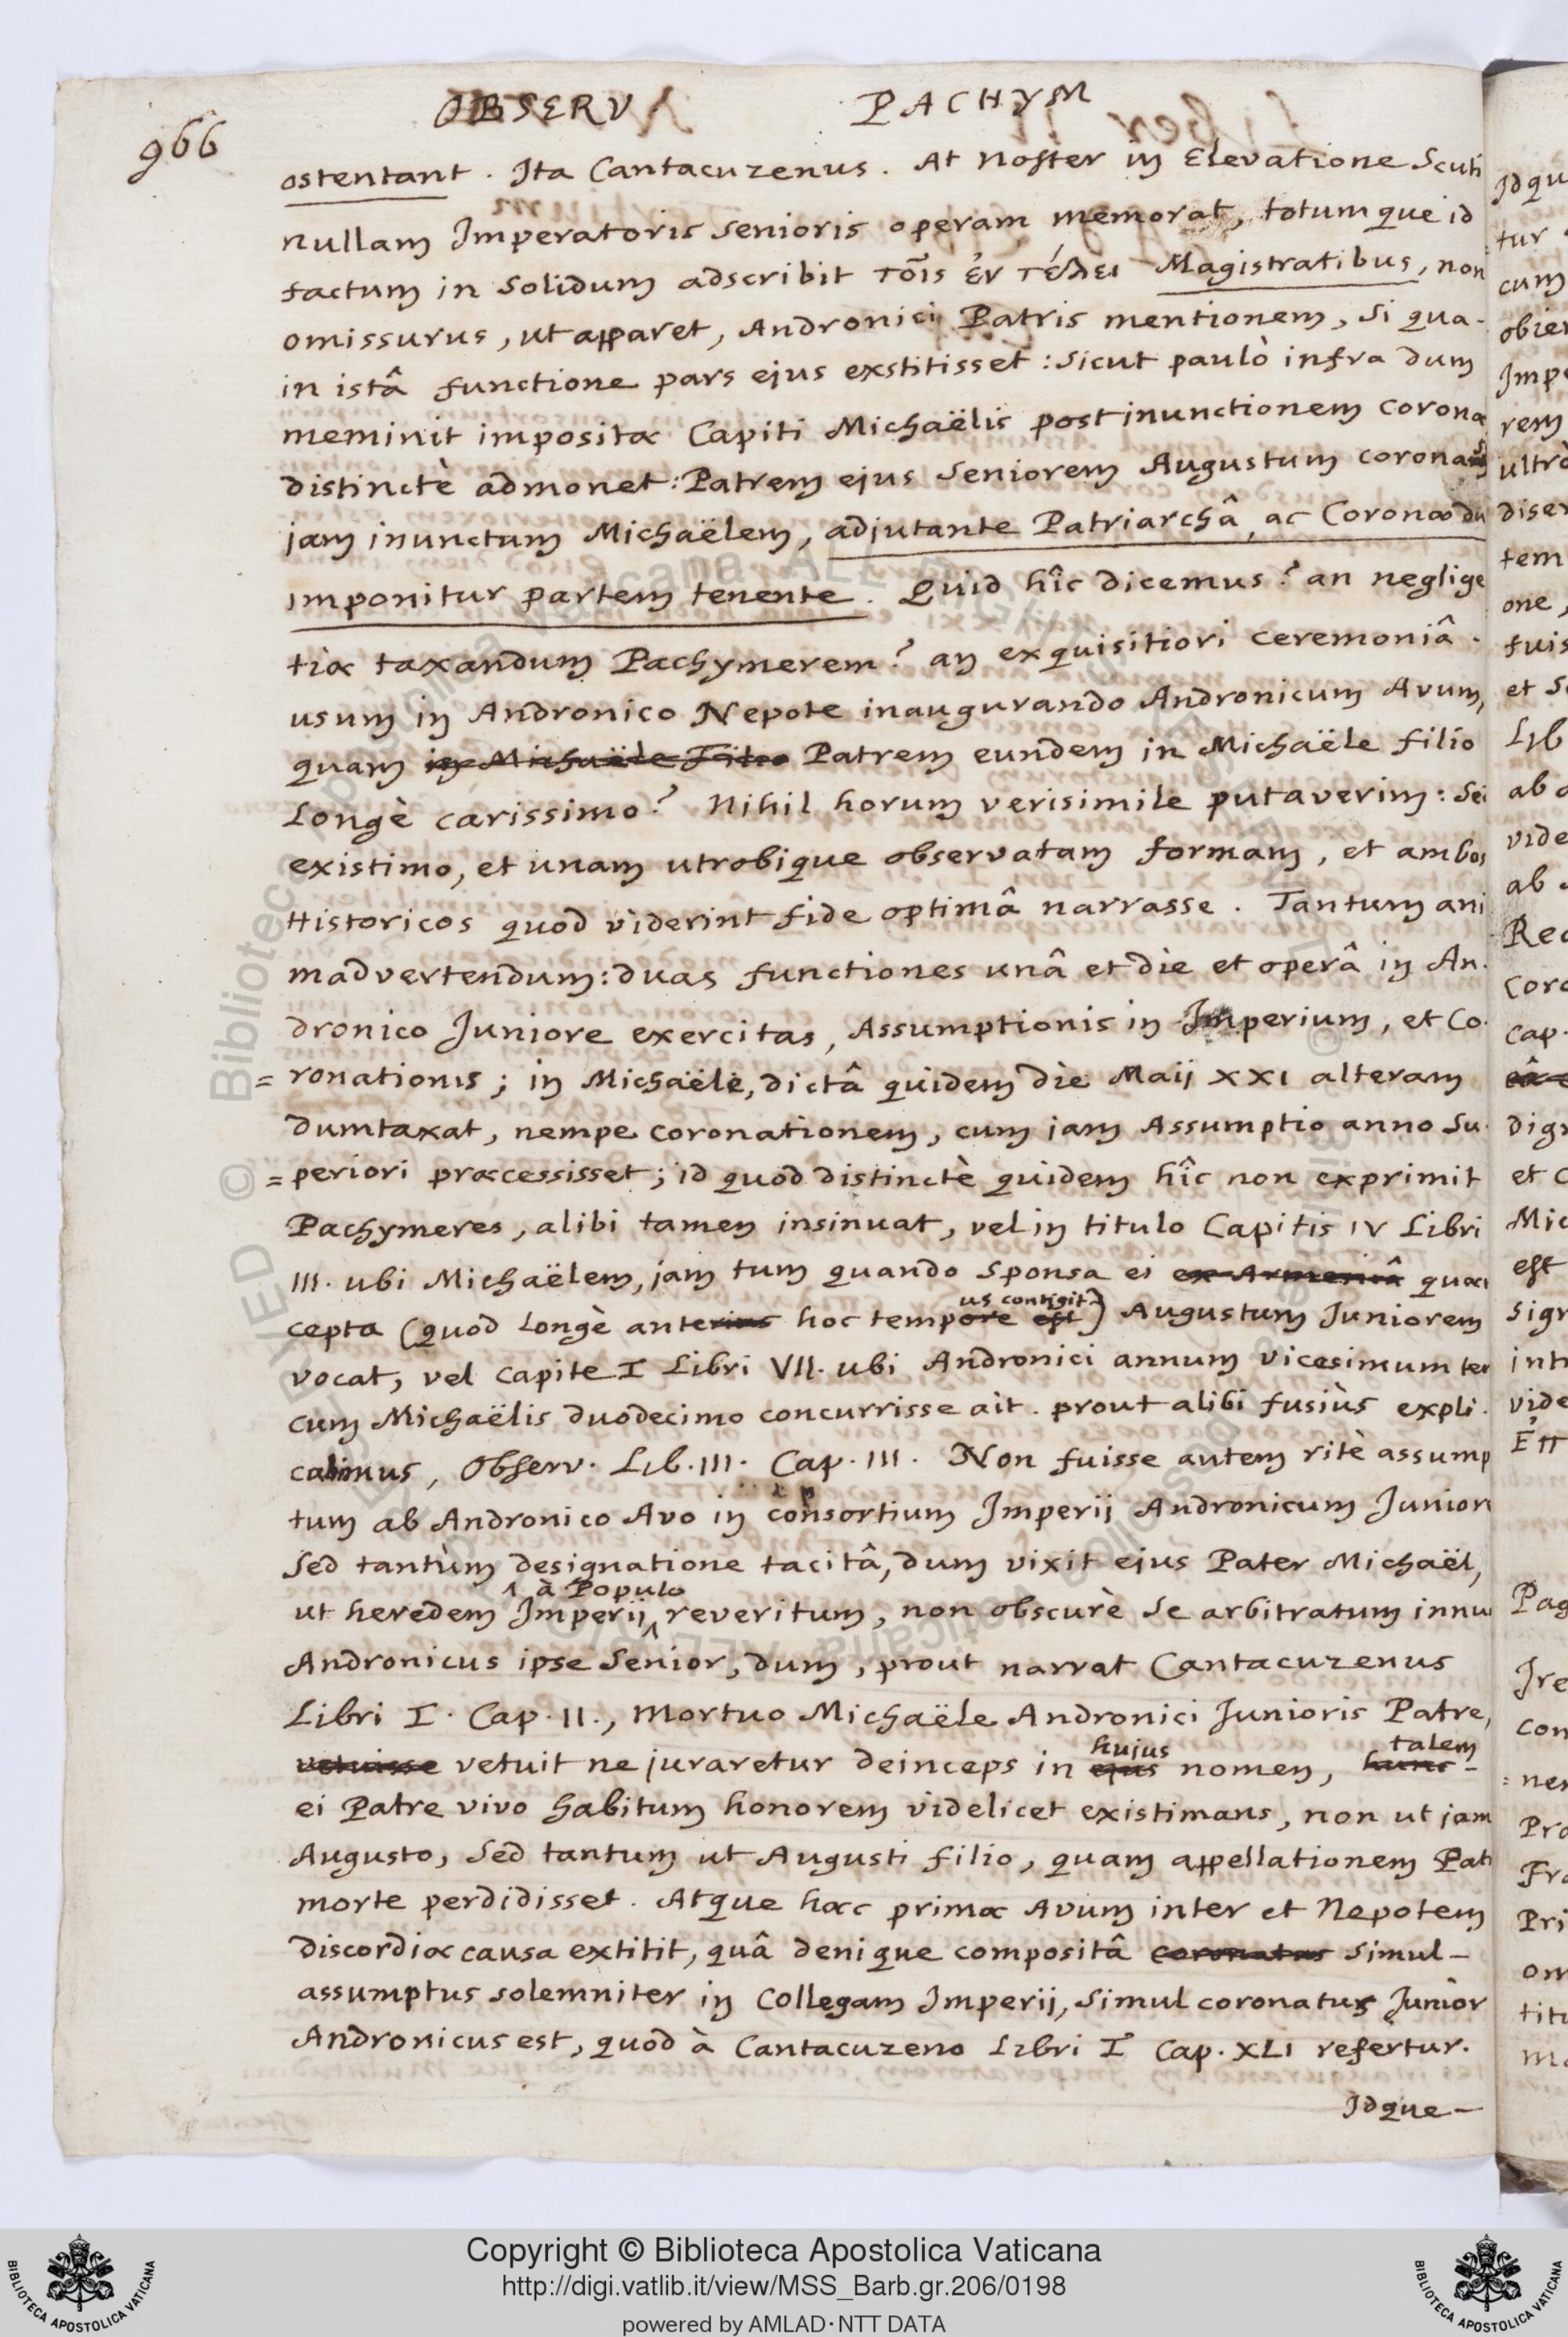 OBSERV PACHYM
966
ostentant . Ita Cantacuzenus . At Noster in Elevatione Scuti
nullam Imperatoris senioris operam memorat, totumque id
factum in solidum adscribit τοῖς ἐν τέλει Magistratibus, non
omissurus, ut apparet, Andronici Patris mentionem, si qua-
in istâ functione pars ejus exstitisset : sicut paulò infra dum
meminit impositæ Capiti Michaëlis post inunctionem coronæ
distinctè admonet: Patrem ejus Seniorem Augustum
jam inunctum Michaëlem, adjutante Patriarchâ, ac Coronæ du
imponitur partem tenente . Quid hîc dicemus? an neglige
tiæ taxandum Pachymerem? an exquisitiori ceremoniâ .
usum in Andronico Nepote inaugurando Andronicum Avum,
quam in Michaële Filio Patrem eundem in Michaële filio
longè carissimo? Nihil horum verisimile putaverim: Sed
existimo, et unam utrobique observatam formam, et ambos
Historicos quod viderint fide optimâ narrasse . Tantum ani
madvertendum: duas functiones unâ et die et operâ in An-
dronico Juniore exercitas, Assumptionis in Imperium, et Co-
= ronationis; in Michaële, dictâ quidem die Maij XXI alteram
dumtaxat, nempe coronationem, cum jam Assumptio anno Su-
= periori præcessisset; id quod distinctè quidem hîc non exprimit
Pachymeres, alibi tamen insinuat, vel in titulo Capitis IV Libri
III. ubi Michaëlem, jam tum quando Sponsa ei ex Armeniâ quæ
us contigit
cepta (quod longè anterius hoc tempore est) Augustum Juniorem
vocat, vel capite I Libri VII. ubi Andronici annum vicesimum ter
cum Michaëlis duodecimo concurrisse ait . prout alibi fusiùs expli-
cabimus, Observ. Lib. III. Cap. III. Non fuisse autem ritè assump
tum ab Andronico Avo in consortium Imperij Andronicum Junior
Sed tantùm designatione tacitâ, dum vixit ejus Pater Michaël,
à Populo
ut heredem Imperij, reveritum, non obscurè se arbitratum innu
Andronicus ipse Senior, dum, prout narrat Cantacuzenus
Libri I. Cap. II., Mortuo Michaële Andronici Junioris Patre,
hujus talem
vetuisse vetuit ne juraretur deinceps in ejus nomen, hunc -
ei Patre vivo habitum honorem videlicet existimans, non ut jam
Augusto, sed tantum ut Augusti filio, quam appellationem Pat
morte perdidisset . Atque hæc prima Avum inter et Nepotem
discordiæ causa extitit, quâ denique compositâ coronatus simul -
assumptus solemniter in Collegam Imperij, simul coronatus Junior
Andronicus est, quod à Cantacuzeno Libri I Cap. XLI refertur.
Idque -
Idqu
tur
cum
obie
Imp
rem
ultrò
diser
tem
one,
fuis
et S
Lib
ab
vide
ab
Rec
coro
cap.
dign
et c
Mic
est
sign
int
vide
Pag
Ire
con
= ne
Pro
Fra
Pri
om
titu
Copyright © Biblioteca Apostolica Vaticana
http://digi.vatlib.it/view/MSS_Barb.gr.206/0198
powered by AMLAD·NTT DATA
BIBLIOTECA APOSTOLICA VATICANA
BIBLIOTECA APOSTOLICA VATICANA